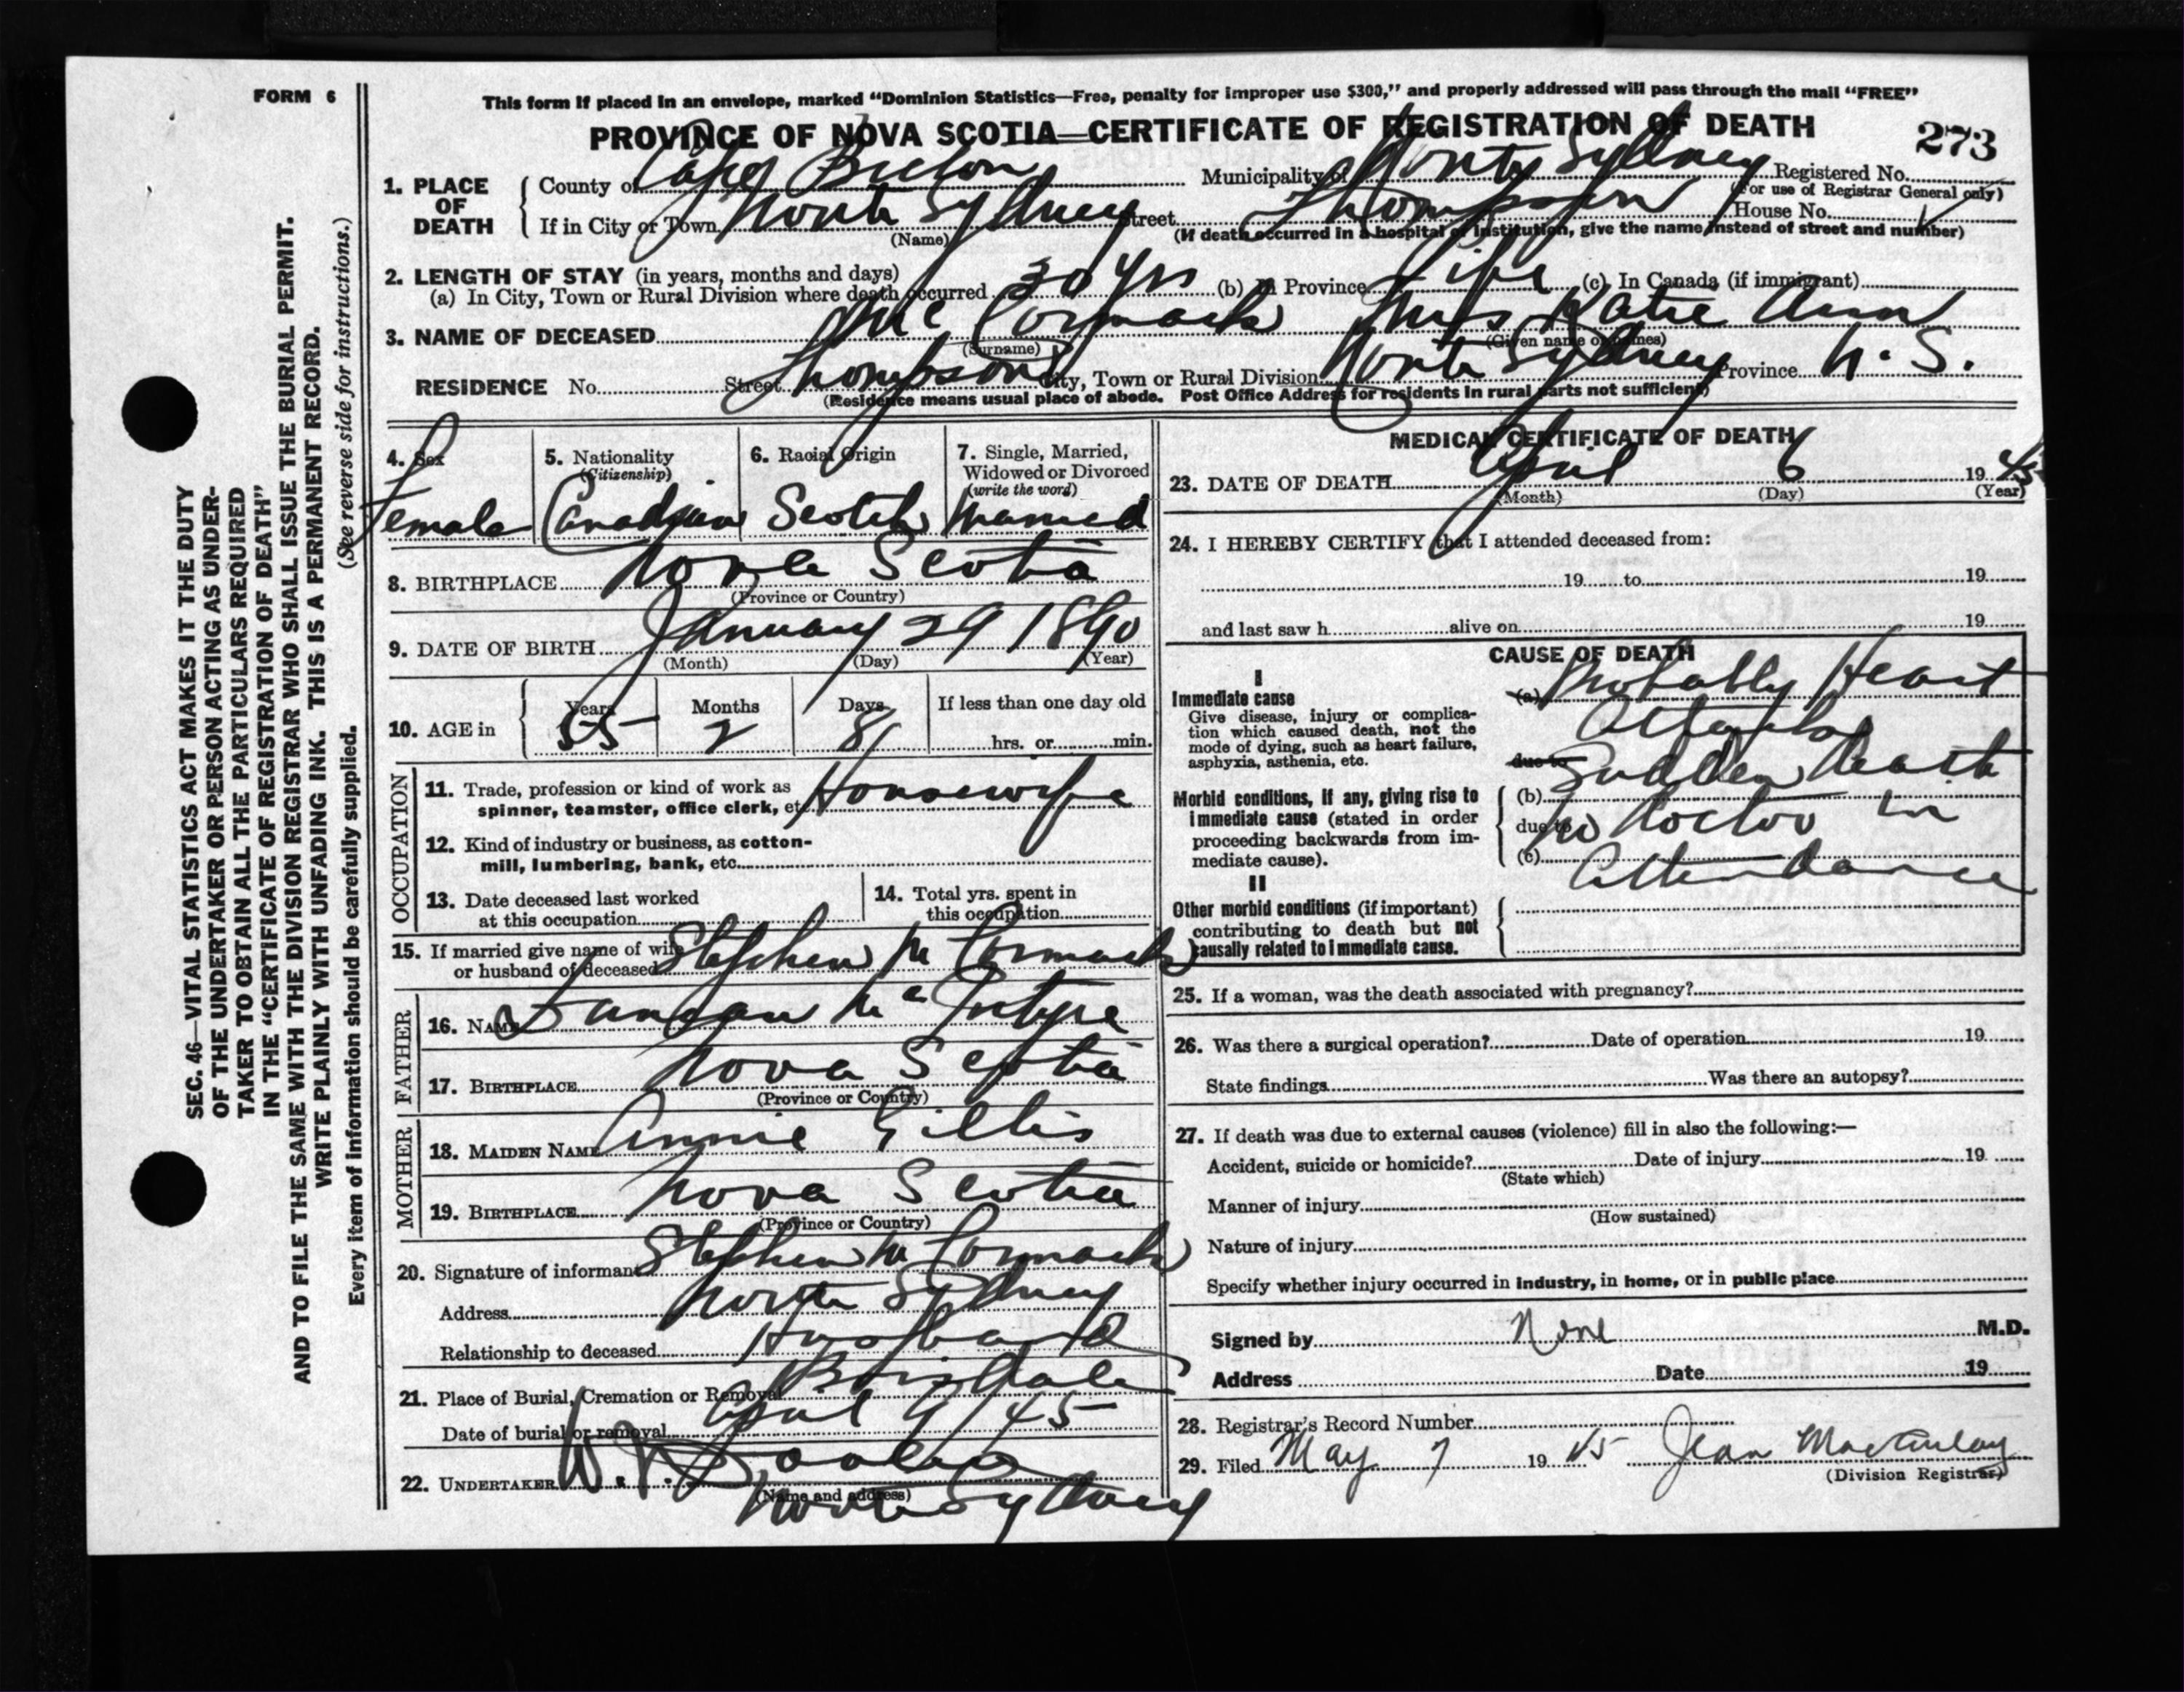 FORM 6
This form if placed in an envelope, marked “Dominion Statistics—Free, penalty for improper use $300,” and properly addressed will pass through the mail “FREE”
PROVINCE OF NOVA SCOTIA—CERTIFICATE OF REGISTRATION OF DEATH
273
1. PLACE OF DEATH
County of Cape Breton Municipality of North Sydney Registered No.
(For use of Registrar General only)
If in City or Town North Sydney Street Thompson House No.
(Name) (If death occurred in a hospital or institution, give the name instead of street and number)
2. LENGTH OF STAY (in years, months and days)
(a) In City, Town or Rural Division where death occurred 30 yrs (b) In Province Life (c) In Canada (if immigrant)
3. NAME OF DECEASED Mc Cormack Mrs Katie Ann
(Surname) (Given name or names)
RESIDENCE No. Street Thompson City, Town or Rural Division North Sydney Province N. S.
(Residence means usual place of abode. Post Office Address for residents in rural parts not sufficient)
4. Sex
Female
5. Nationality
(Citizenship)
Canadian
6. Racial Origin
Scotch
7. Single, Married,
Widowed or Divorced
(write the word)
Married
8. BIRTHPLACE Nova Scotia
(Province or Country)
9. DATE OF BIRTH January 29 1890
(Month) (Day) (Year)
10. AGE in
Years Months Days If less than one day old
55 2 8 hrs. or min.
OCCUPATION
11. Trade, profession or kind of work as
spinner, teamster, office clerk, etc. Housewife
12. Kind of industry or business, as cotton-
mill, lumbering, bank, etc.
13. Date deceased last worked
at this occupation
14. Total yrs. spent in
this occupation
15. If married give name of wife
or husband of deceased Stephen Mc Cormack
FATHER
16. NAME Duncan Mc Intyre
17. BIRTHPLACE Nova Scotia
(Province or Country)
MOTHER
18. MAIDEN NAME Annie Gillis
19. BIRTHPLACE Nova Scotia
(Province or Country)
20. Signature of informant Stephen Mc Cormack
Address North Sydney
Relationship to deceased Husband
21. Place of Burial, Cremation or Removal Boisdale
Date of burial or removal April 9/45
22. UNDERTAKER
(Name and address)
North Sydney
MEDICAL CERTIFICATE OF DEATH
23. DATE OF DEATH April 6 1945
(Month) (Day) (Year)
24. I HEREBY CERTIFY that I attended deceased from:
19 to 19
and last saw h alive on 19
CAUSE OF DEATH
I
Immediate cause
Give disease, injury or complica-
tion which caused death, not the
mode of dying, such as heart failure,
asphyxia, asthenia, etc.
(a) Probably Heart
Attack
due to Sudden Death
Morbid conditions, if any, giving rise to
immediate cause (stated in order
proceeding backwards from im-
mediate cause).
(b)
due to No Doctor in
(c) Attendance
II
Other morbid conditions (if important)
contributing to death but not
causally related to immediate cause.
25. If a woman, was the death associated with pregnancy?
26. Was there a surgical operation? Date of operation 19
State findings Was there an autopsy?
27. If death was due to external causes (violence) fill in also the following:—
Accident, suicide or homicide? Date of injury 19
(State which)
Manner of injury
(How sustained)
Nature of injury
Specify whether injury occurred in industry, in home, or in public place
Signed by None M.D.
Address Date 19
28. Registrar's Record Number
29. Filed May 7 1945 Jean MacAulay
(Division Registrar)
SEC. 46—VITAL STATISTICS ACT MAKES IT THE DUTY
OF THE UNDERTAKER OR PERSON ACTING AS UNDER-
TAKER TO OBTAIN ALL THE PARTICULARS REQUIRED
IN THE “CERTIFICATE OF REGISTRATION OF DEATH”
AND TO FILE THE SAME WITH THE DIVISION REGISTRAR WHO SHALL ISSUE THE BURIAL PERMIT.
WRITE PLAINLY WITH UNFADING INK. THIS IS A PERMANENT RECORD.
(See reverse side for instructions.)
Every item of information should be carefully supplied.